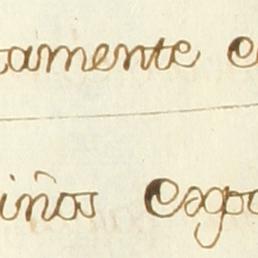 tamente e
iños expo